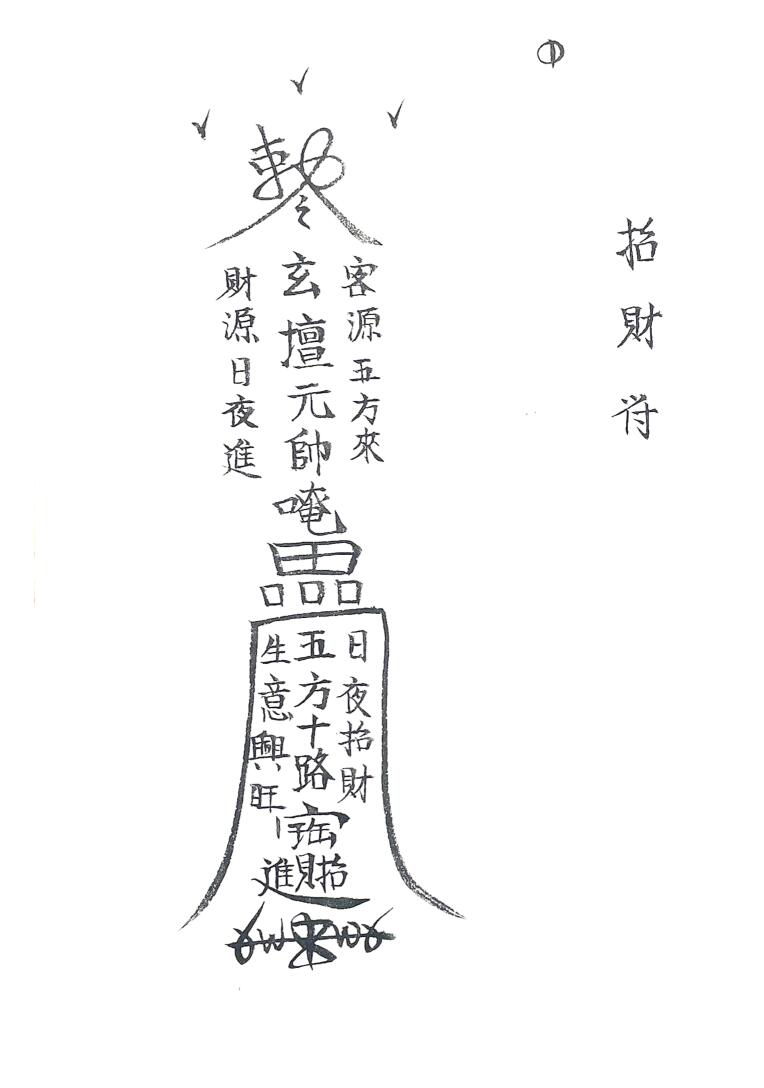 ①
招財符
敕令
客源五方來
玄壇元帥唵
財源日夜進
日夜招財
五方十路
生意興旺
招財進寳